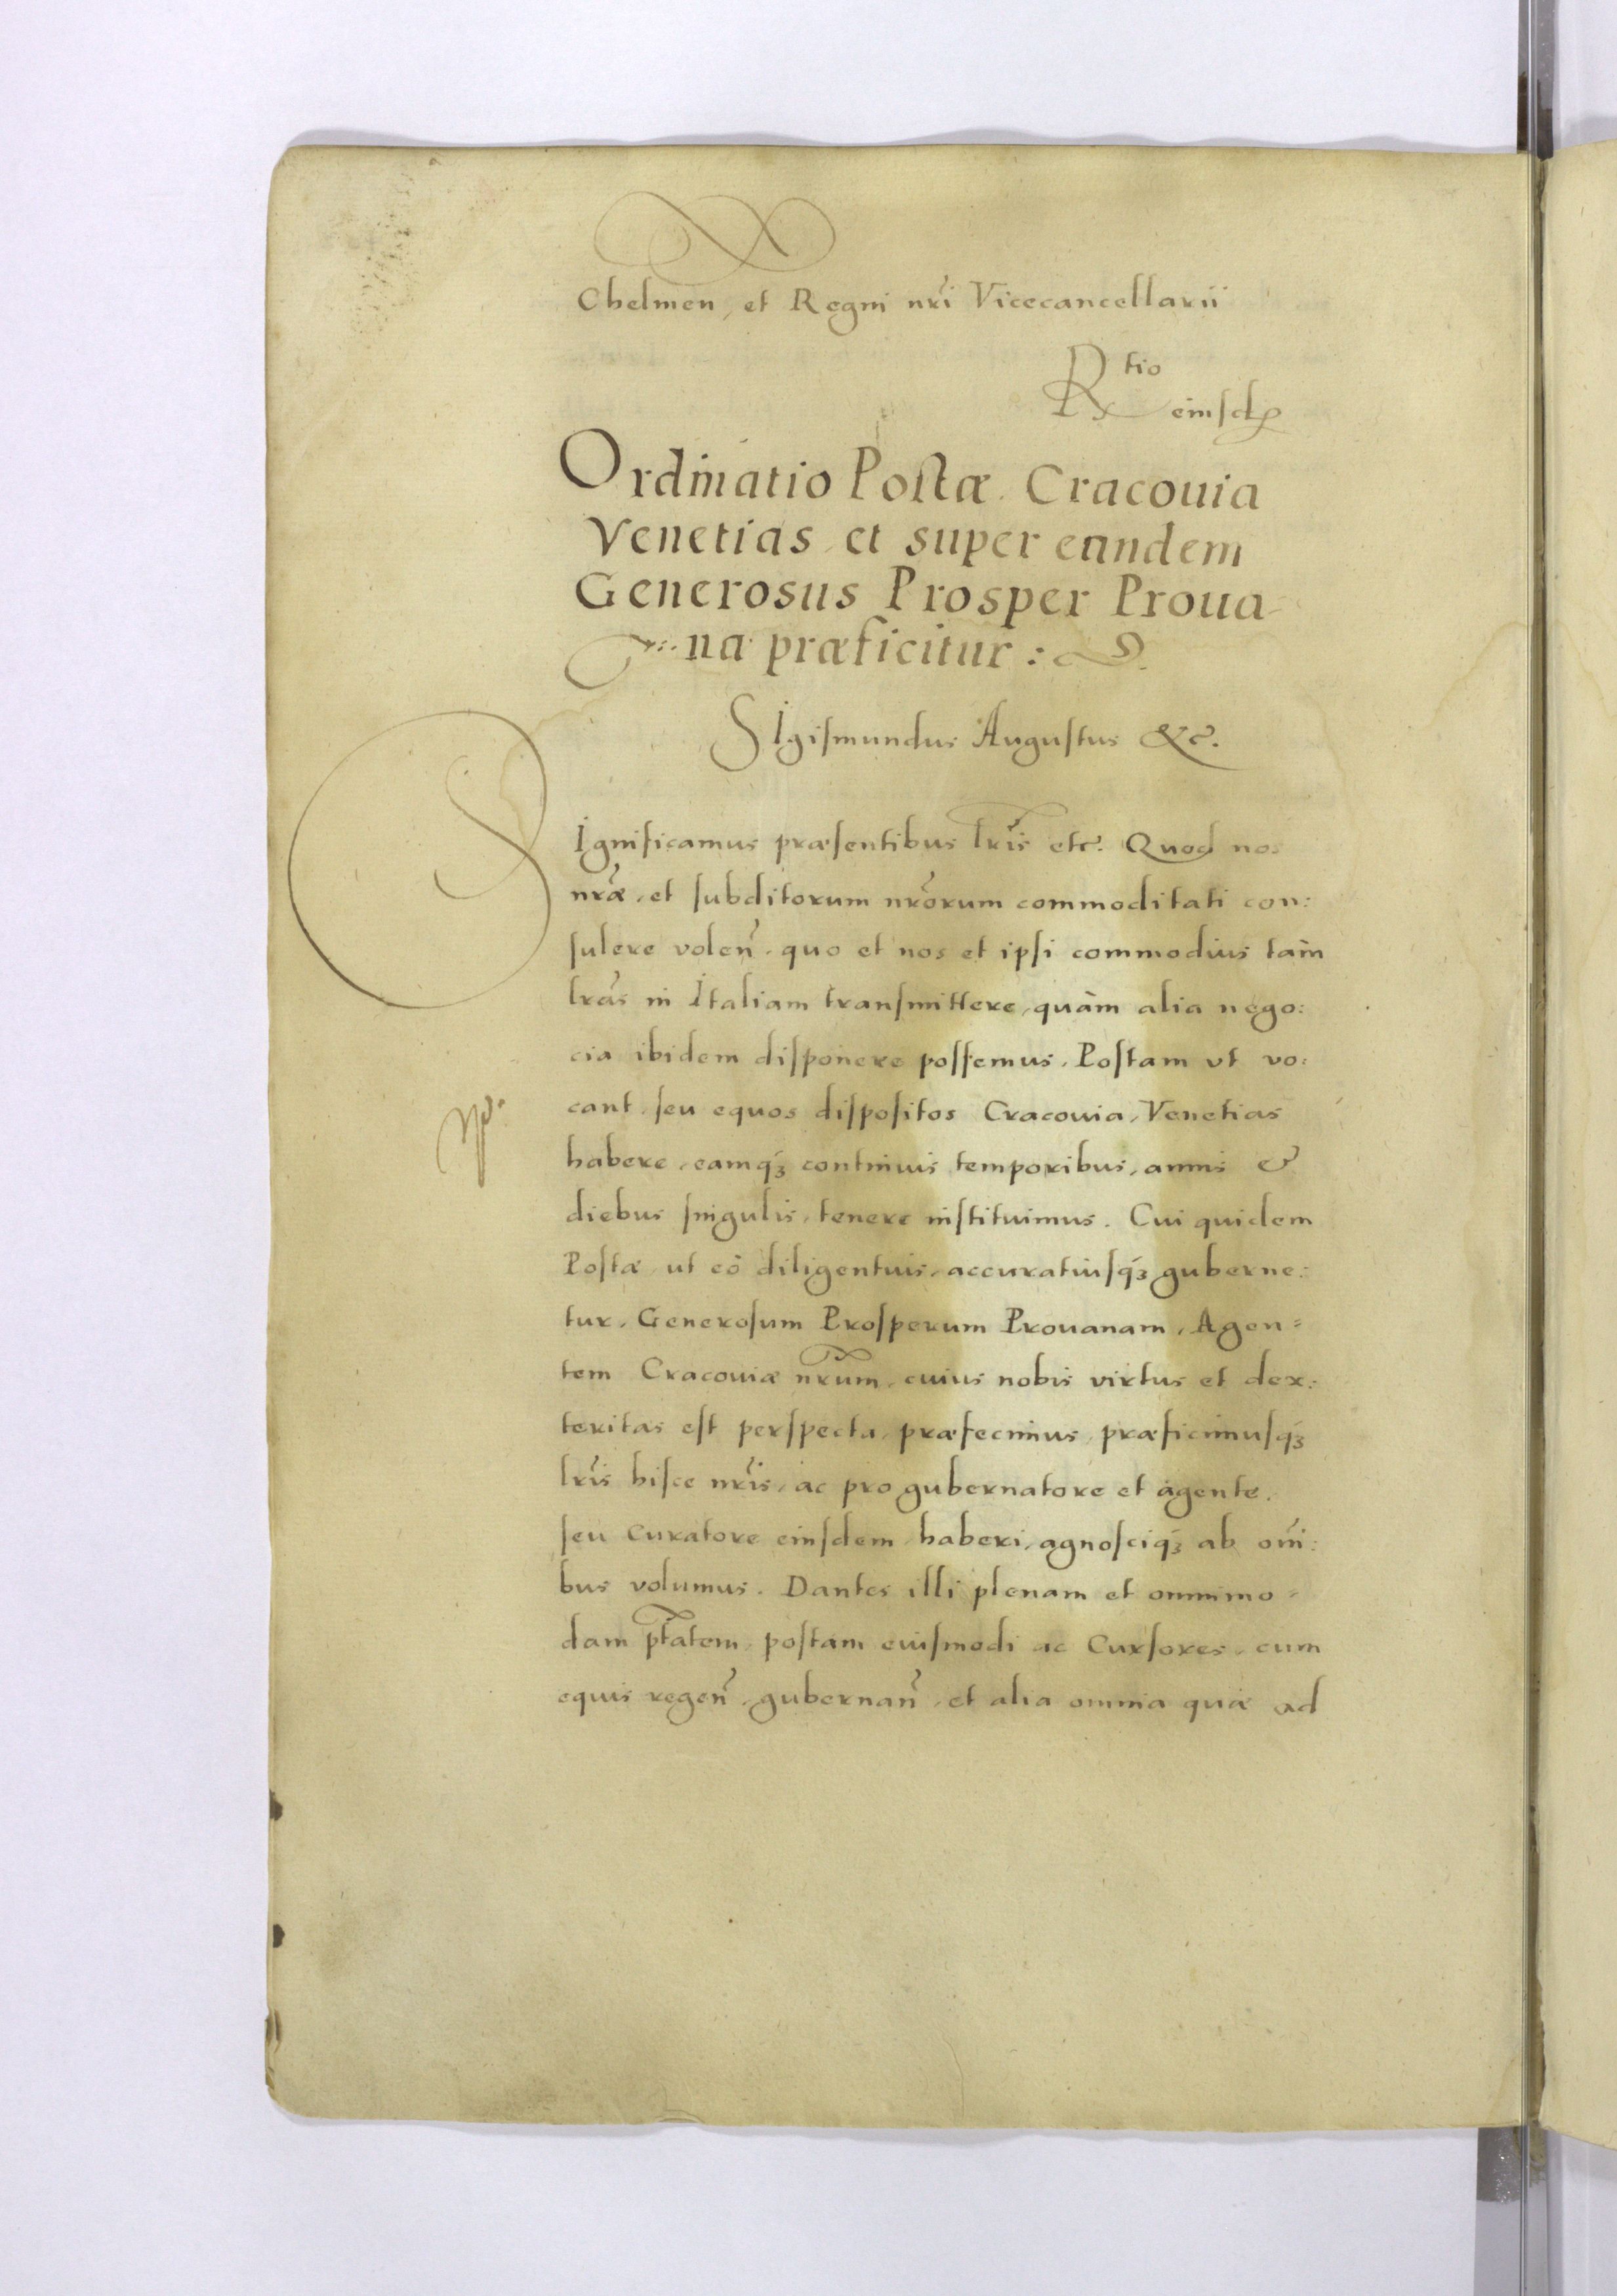 Chelmen, et Regni nr̃i Vicecancellarii
R tio
eiusdꝫ
Ordinatio Postæ Cracouia
Venetias et super eandem
Generosus Prosper Proua-
na præficitur :
SIgiſmundus Auguſtus &c.
SIgnificamus præſentibus lr̃is etc. Quod nos
nr̃æ, et ſubditorum nr̃orum commoditati con:
ſulere voleñ, quo et nos et ipſi commodius tàm
lr̃as in Italiam tranſmittere, quàm alia nego:
cia ibidem diſponere poſſemus, Poſtam vt vo:
cant, ſeu equos diſpoſitos Cracouia, Venetias
habere, eamqꝫ continuis temporibus, annis &
diebus ſingulis, tenere inſtituimus. Cui quidem
Poſtæ ut eò diligentius, accuratiuſqꝫ guberne:
tur, Generoſum Proſperum Prouanam, Agen=
tem Cracouiæ nr̃um, cuius nobis virtus et dex:
teritas eſt perſpecta, præfecimus, præficimuſqꝫ
lr̃is hiſce nr̃is, ac pro gubernatore et agente,
ſeu curatore eiuſdem haberi, agnoſciqꝫ ab om̃i:
bus volumus. Dantes illi plenam et omnimo-
dam ptãtem, poſtam eiuſmodi ac Curſores, cum
equis regeñ, gubernañ, et alia omnia quæ ad